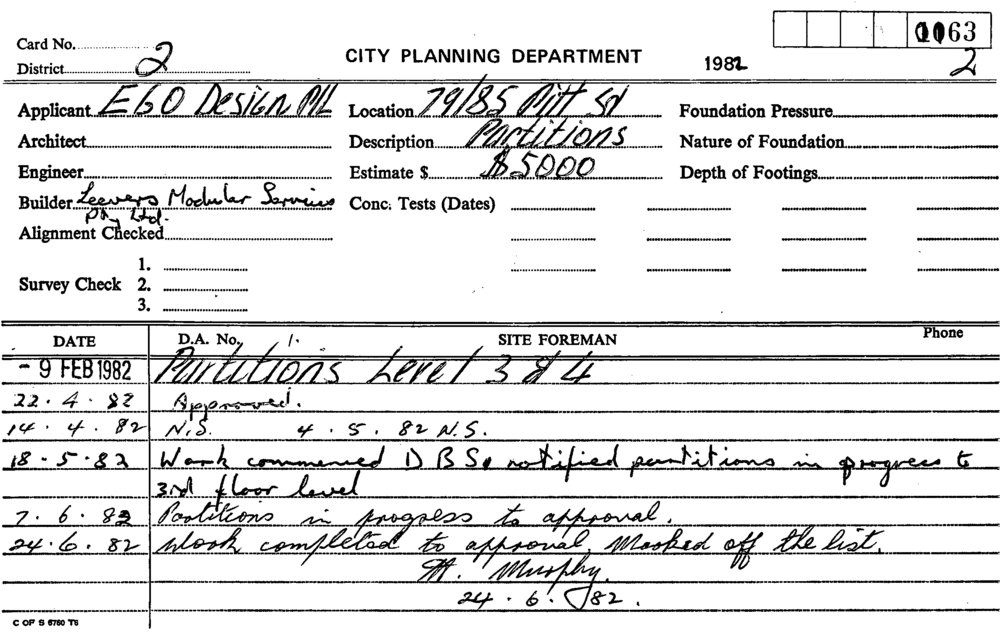 1063
Card No.
District 2
CITY PLANNING DEPARTMENT
1982
2
Applicant EGO Design P/L
Location 79/85 Pitt St
Foundation Pressure
Architect
Description Partitions
Nature of Foundation
Engineer
Estimate $ $5000
Depth of Footings
Builder Leevers Modular Services
Pty Ltd.
Conc. Tests (Dates)
Alignment Checked
Survey Check
1.
2.
3.
DATE
D.A. No.
SITE FOREMAN
Phone
- 9 FEB 1982 Partitions Level 3 & 4
22.4.82 Approved.
14.4.82 N.S. 4.5.82 N.S.
18.5.82 Work commenced D B S notified partitions in progress to
3rd floor level
7.6.82 Partitions in progress to approval.
24.6.82 Work completed to approval. Marked off the list.
M. Murphy.
24.6.82.
C OF S 6760 TS